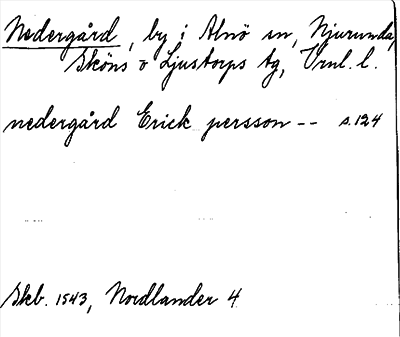 Nedergård, by i Alnö sn, Njurunda,
Sköns o Ljustorps tg, Vrml. l.
nedergård Erick persson -- s. 124
Skb. 1543, Nordlander 4